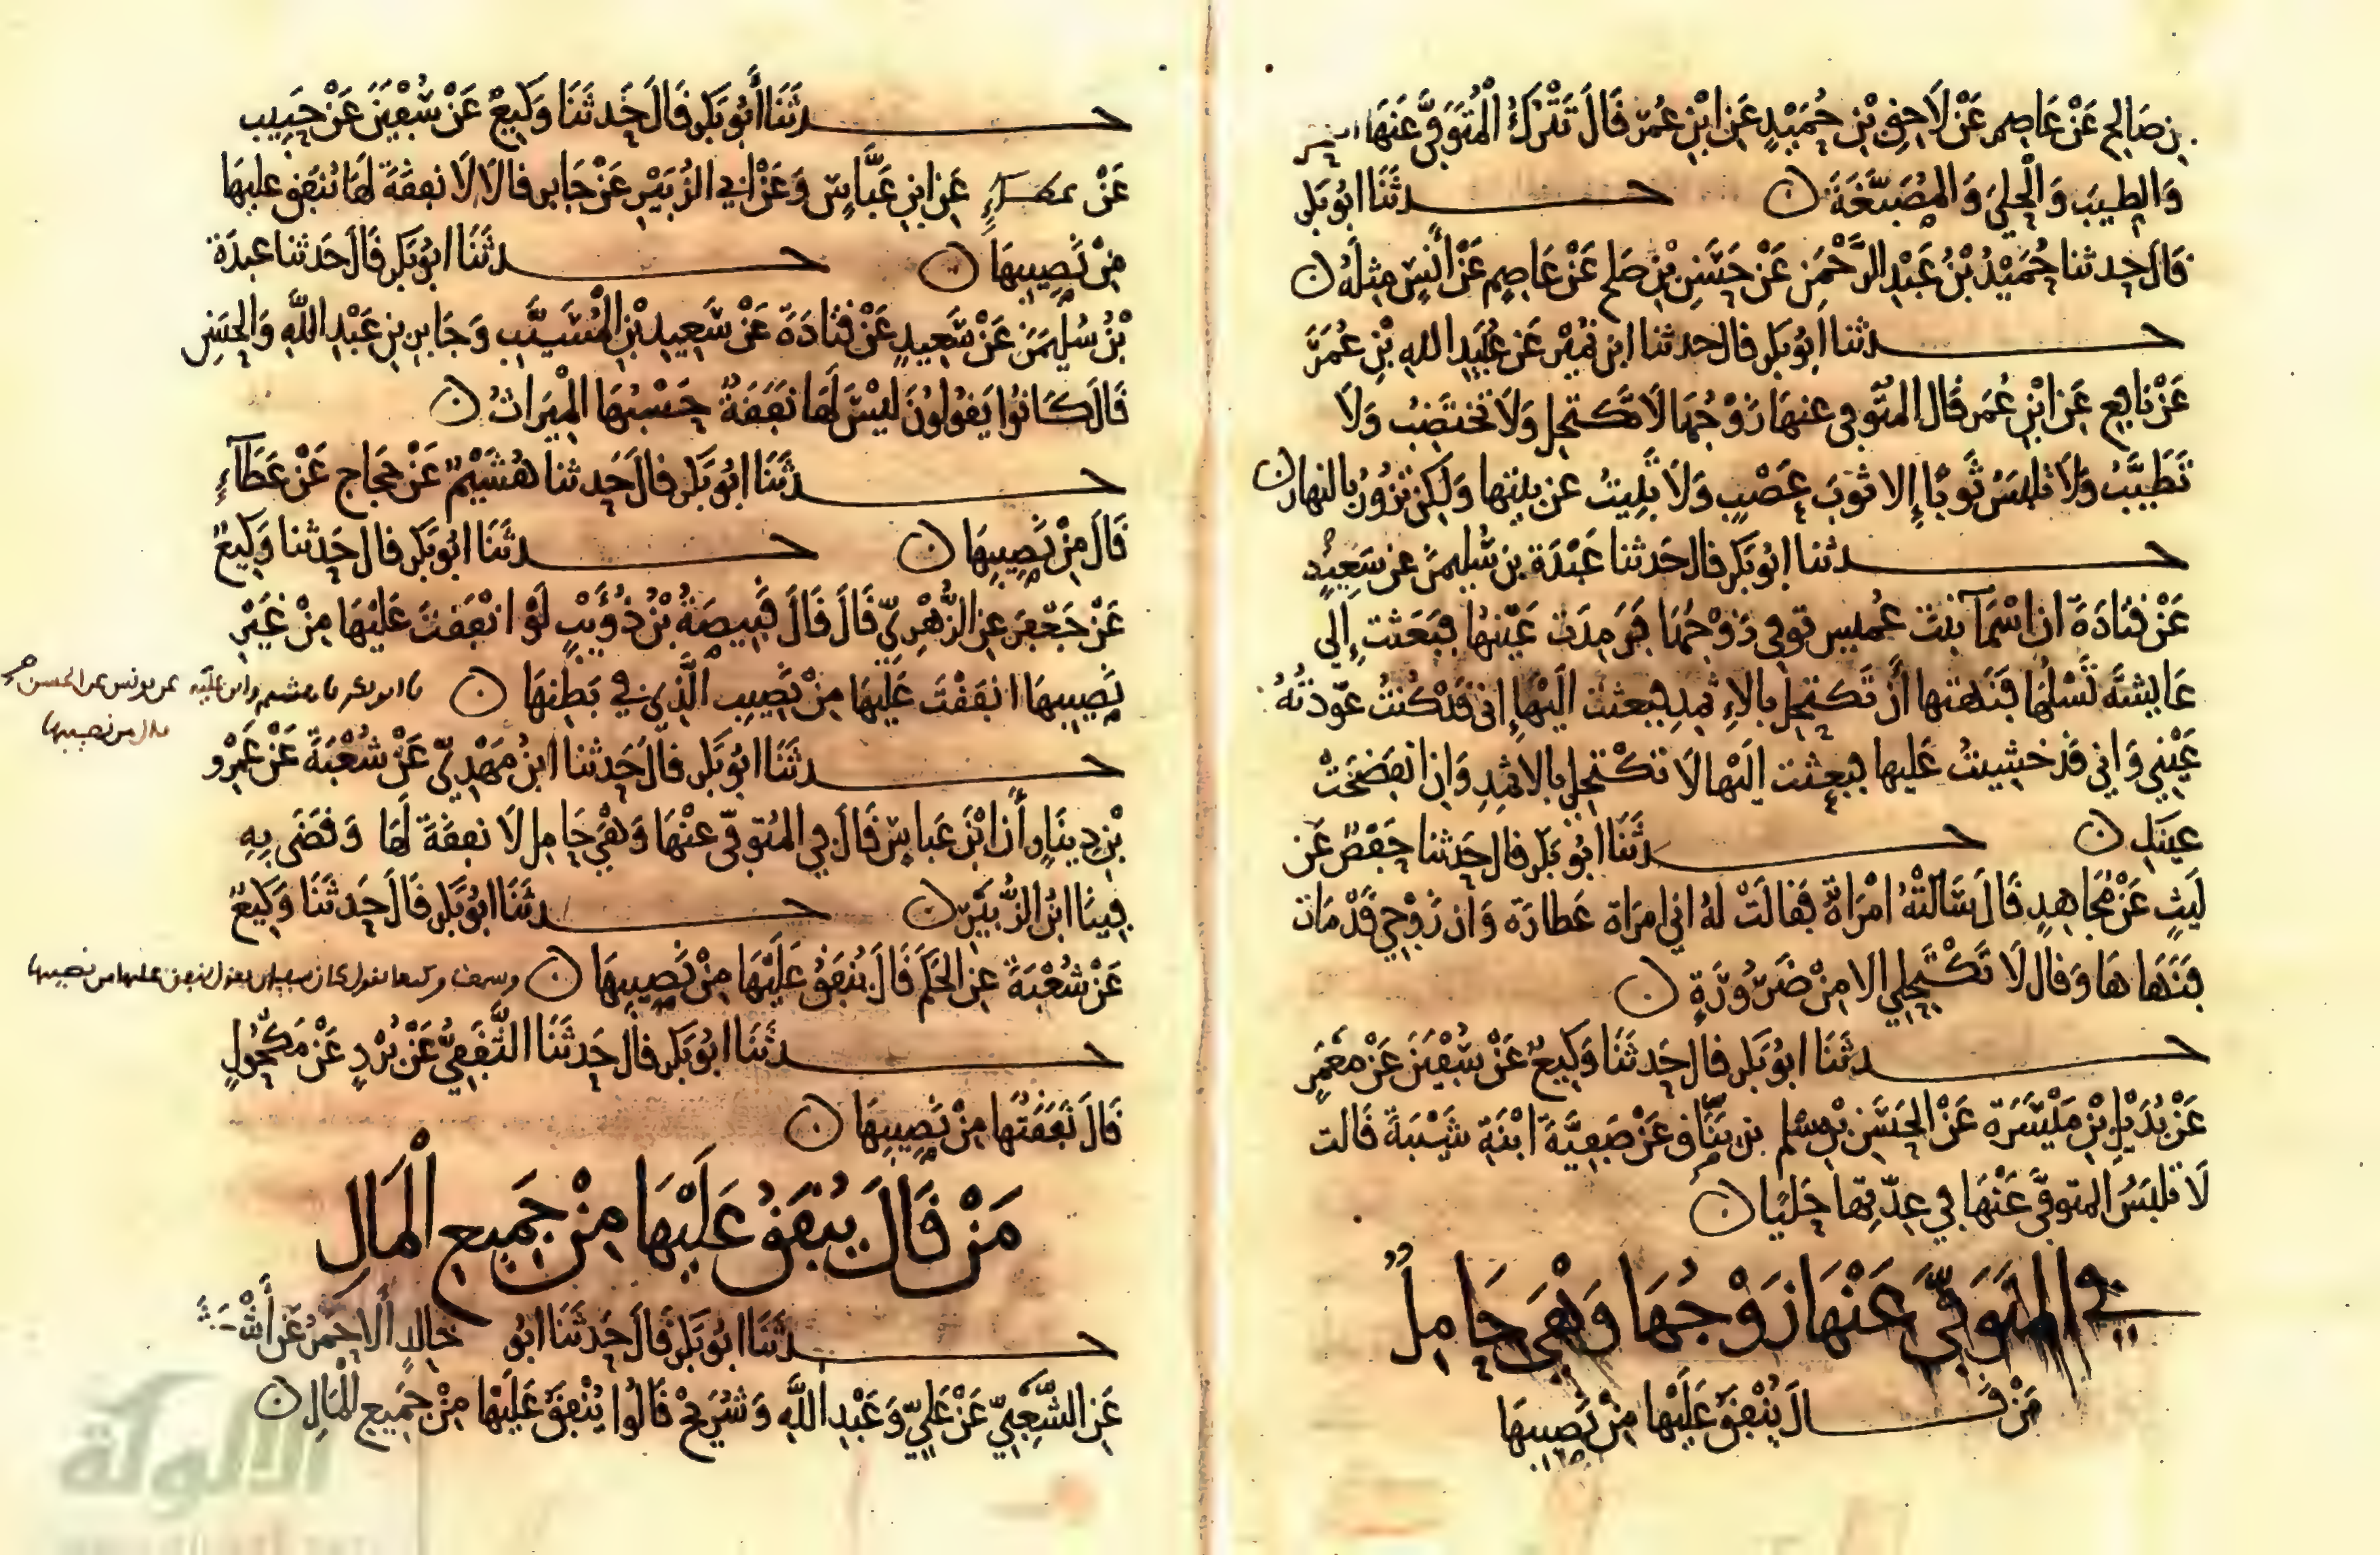 بن صالح عن عاصم عن لاحق بن حميد عن ابن عمر قال تترك المتوفى عنها
والطيب والحلي والمصبغة ن حـــدثنا ابو بكر
قال حدثنا حميد بن عبد الرحمن عن حسن بن صلح عن عاصم عن أنس مثله ن
حـــدثنا ابو بكر قال حدثنا ابن نمير عن عبيد الله بن عمر
عن نافع عن ابن عمر قال المتوفى عنها زوجها لا تكتحل ولا تختضب ولا
تطيب ولا تلبس ثوبا إلا ثوب عصب ولا تبيت عن بيتها ولكن تزور بالنهار ن
حـــدثنا ابو بكر قال حدثنا عبدة بن سليمن عن سعيد
عن قتادة ان اسما بنت عميس توفي زوجها فرمدت عينها فبعثت إلى
عايشة تسلها فنهتها أن تكتحل بالإثمد فبعثت اليها إني قد كنت عودته
عيني واني قد خشيت عليها فبعثت اليها لا تكتحل بالاثمد وان انفضخت
عينك ن حـــدثنا ابو بكر قال حدثنا حفص عن
ليث عن مجاهد قال سالته امراة فقالت له اني امراة عطارة وان زوجي قد مات
فنهاها وقال لا تكتحلي الا من ضرورة ن
حـــدثنا ابو بكر قال حدثنا وكيع عن سفين عن معمر
عن بديل بن ميسرة عن الحسن بن مسلم بن يناق عن صفية ابنة شيبة قالت
لا تلبس المتوفى عنها في عدتها حليا ن
في المتوفى عنها زوجها وهي حامل
من قـــال ينفق عليها من نصيبها
حـــدثنا أبو بكر قال حدثنا وكيع عن سفين عن حبيب
عن عطاء عن ابن عباس وعن ابي الزبير عن جابر قالا لا نفقة لها ينفق عليها
من نصيبها ن حـــدثنا ابو بكر قال حدثنا عبدة
بن سليمن عن سعيد عن قتادة عن سعيد بن المسيب وجابر بن عبد الله والحسن
قال كانوا يقولون ليس لها نفقة حسبها الميراث ن
حـــدثنا ابو بكر قال حدثنا هشيم عن حجاج عن عطآء
قال من نصيبها ن حـــدثنا ابو بكر قال حدثنا وكيع
عن جعفر عن الزهري قال قال قبيصة بن ذؤيب لو انفقت عليها من غير
نصيبها انفقت عليها من نصيب الذي في بطنها ن نا ابو بكر نا هشيم وابن علية عن يونس عن الحسن
قال من نصيبها
حـــدثنا ابو بكر قال حدثنا ابن مهدي عن شعبة عن عمرو
بن دينار أن ابن عباس قال في المتوفى عنها وهي حامل لا نفقة لها وقضى به
فينا ابن الزبير ن حـــدثنا ابو بكر قال حدثنا وكيع
عن شعبة عن الحكم قال ينفق عليها من نصيبها ن وسمعت وكيعا يقول كان سفيان يقول ينفق عليها من نصيبها
حـــدثنا ابو بكر قال حدثنا الثقفي عن برد عن مكحول
قال نفقتها من نصيبها ن
من قال ينفق عليها من جميع المال
حـــدثنا ابو بكر قال حدثنا ابو خالد ألاحمر عن أشعث
عن الشعبي عن علي وعبد الله وشريح قالوا ينفق عليها من جميع المال ن
الألوكة